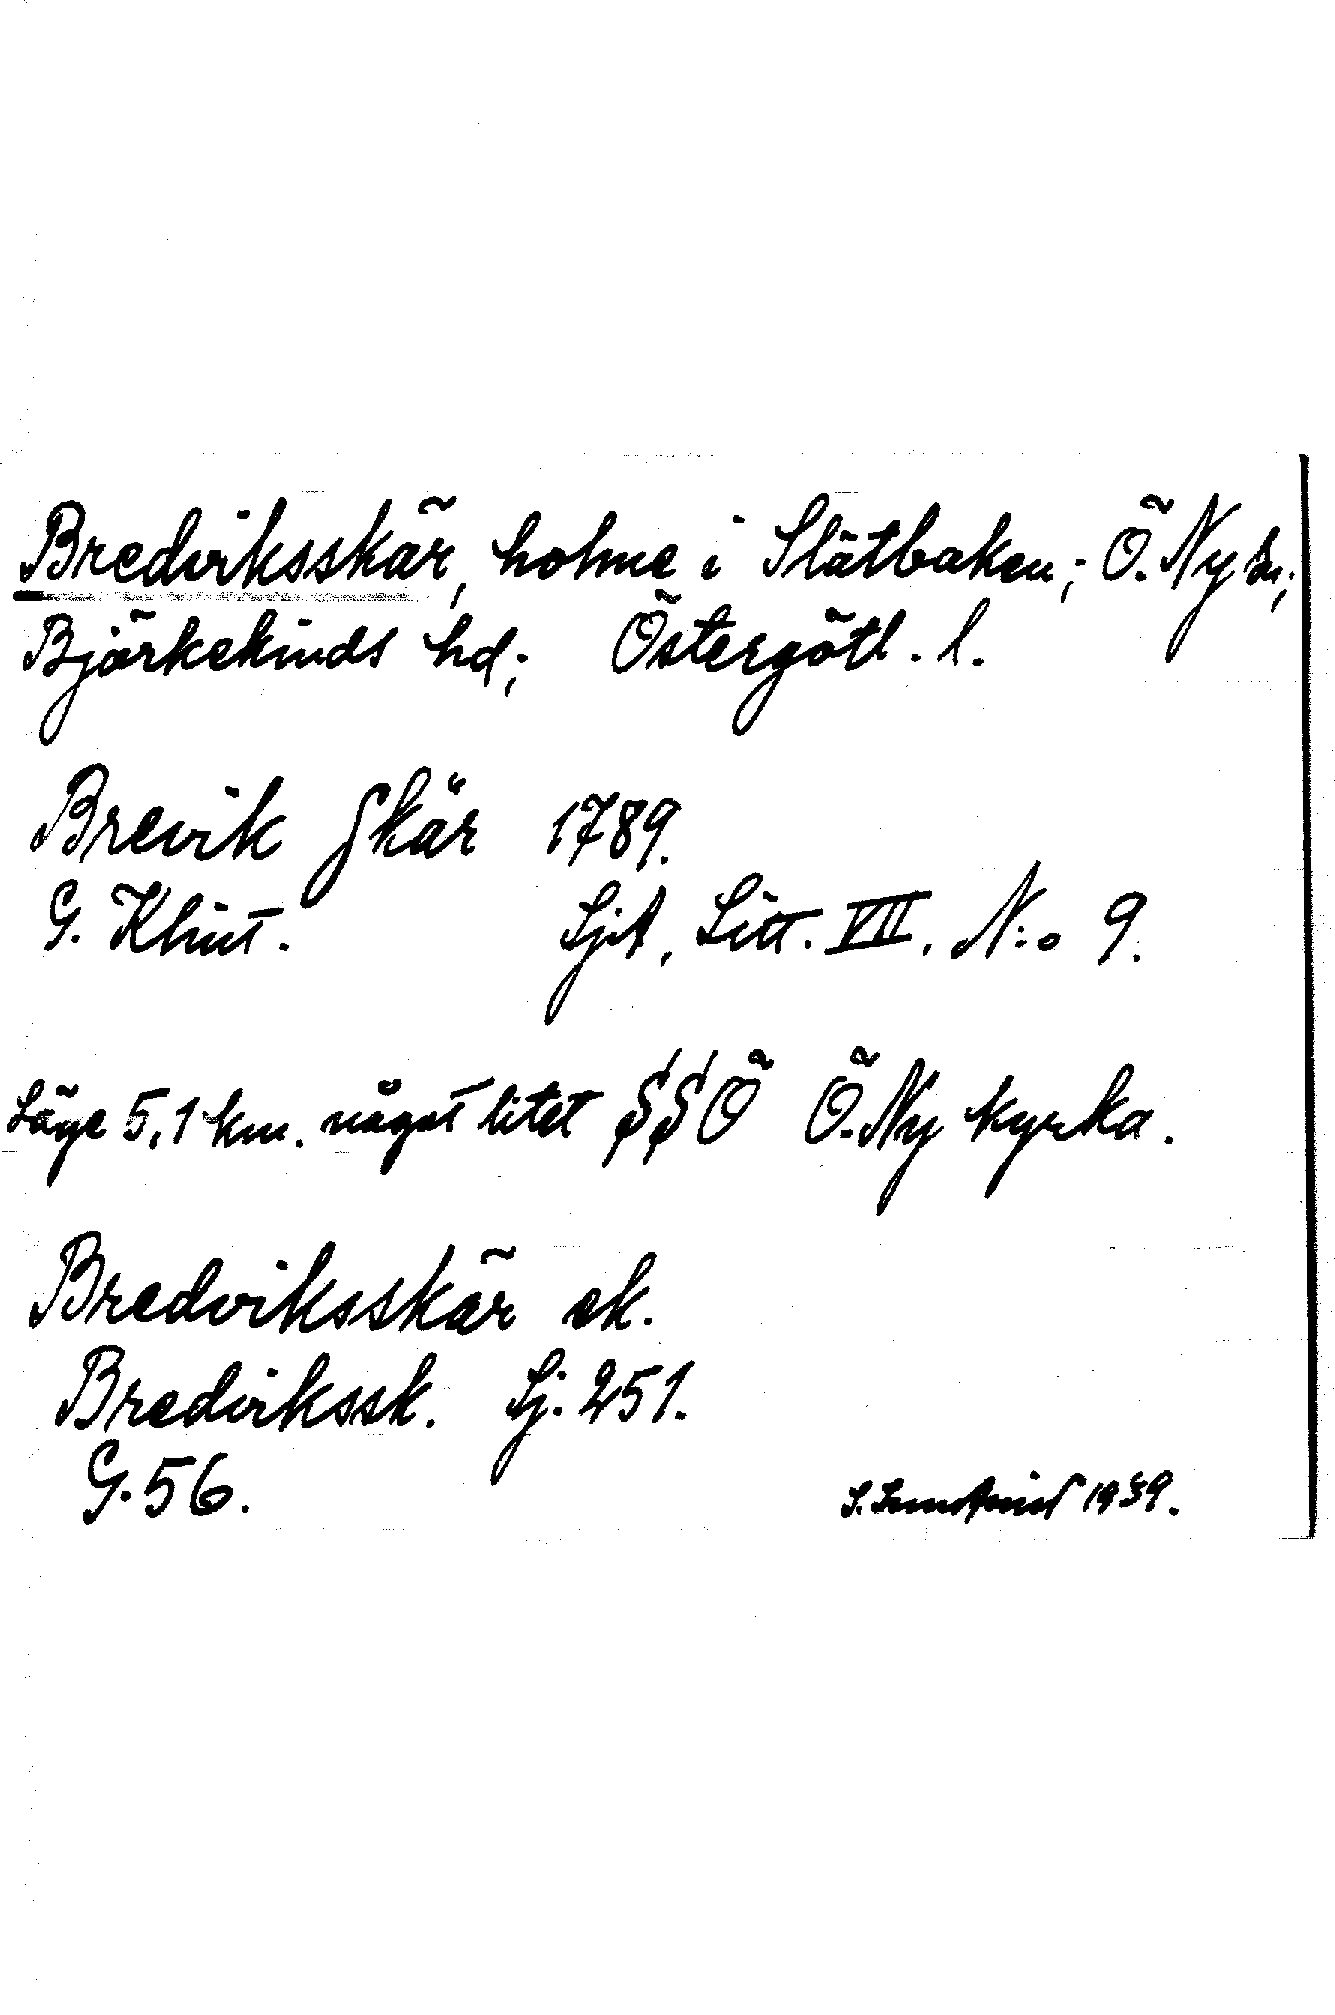 Bredviksskär, holme i Slätbaken; Ö. Ny sn;
Björkekinds hd; Östergötl. l.
Brevik Skär 1789.
G. Klint. Sjk, Litt. VII. N:o 9.
Läge 5,1 km. något litet SSÖ Ö. Ny kyrka.
Bredviksskär ek.
Bredvikssk. Sj. 251.
G. 56.
S. 1939.